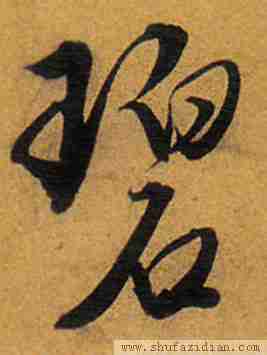 碧
www.shufazidian.com